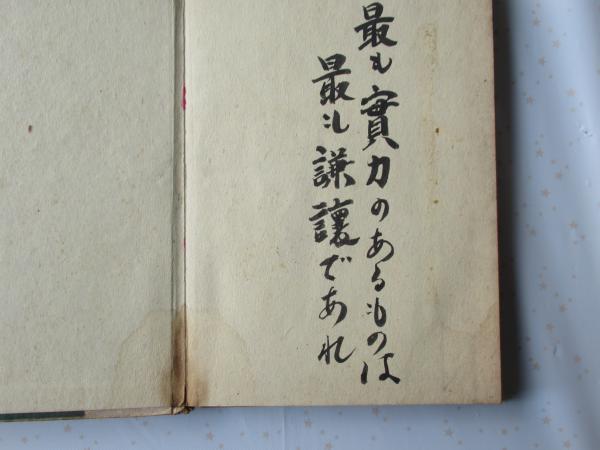 最も實力のあるものは
最も謙讓であれ